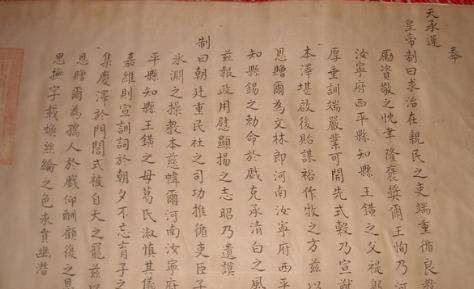 奉
天承運
皇帝制曰求治在親民之吏端重循良
勵資敬之忱聿隆褒獎爾王恂乃河
汝寧府西平縣知縣王之父褆躬
厚垂訓端嚴業可開先式穀乃宣猷
本澤堪啟後貽謀裕作牧之方茲以
恩贈爾為文林郎河南汝寧府西平
知縣錫之勅命於戲克承清白之風
茲報政用慰顯揚之志昭乃遺謨
制曰朝廷重民社之司功推循吏臣子
氷淵之操教本慈幃爾河南汝寧府
平縣知縣王之母葛氏淑慎其儀
嘉維則宣訓詞於朝夕不忘育子之
集慶澤於門閭式被自天之寵茲以
恩贈爾為孺人於戲仰酬顧復之恩
思撫字載煥絲綸之色永賁幽潛